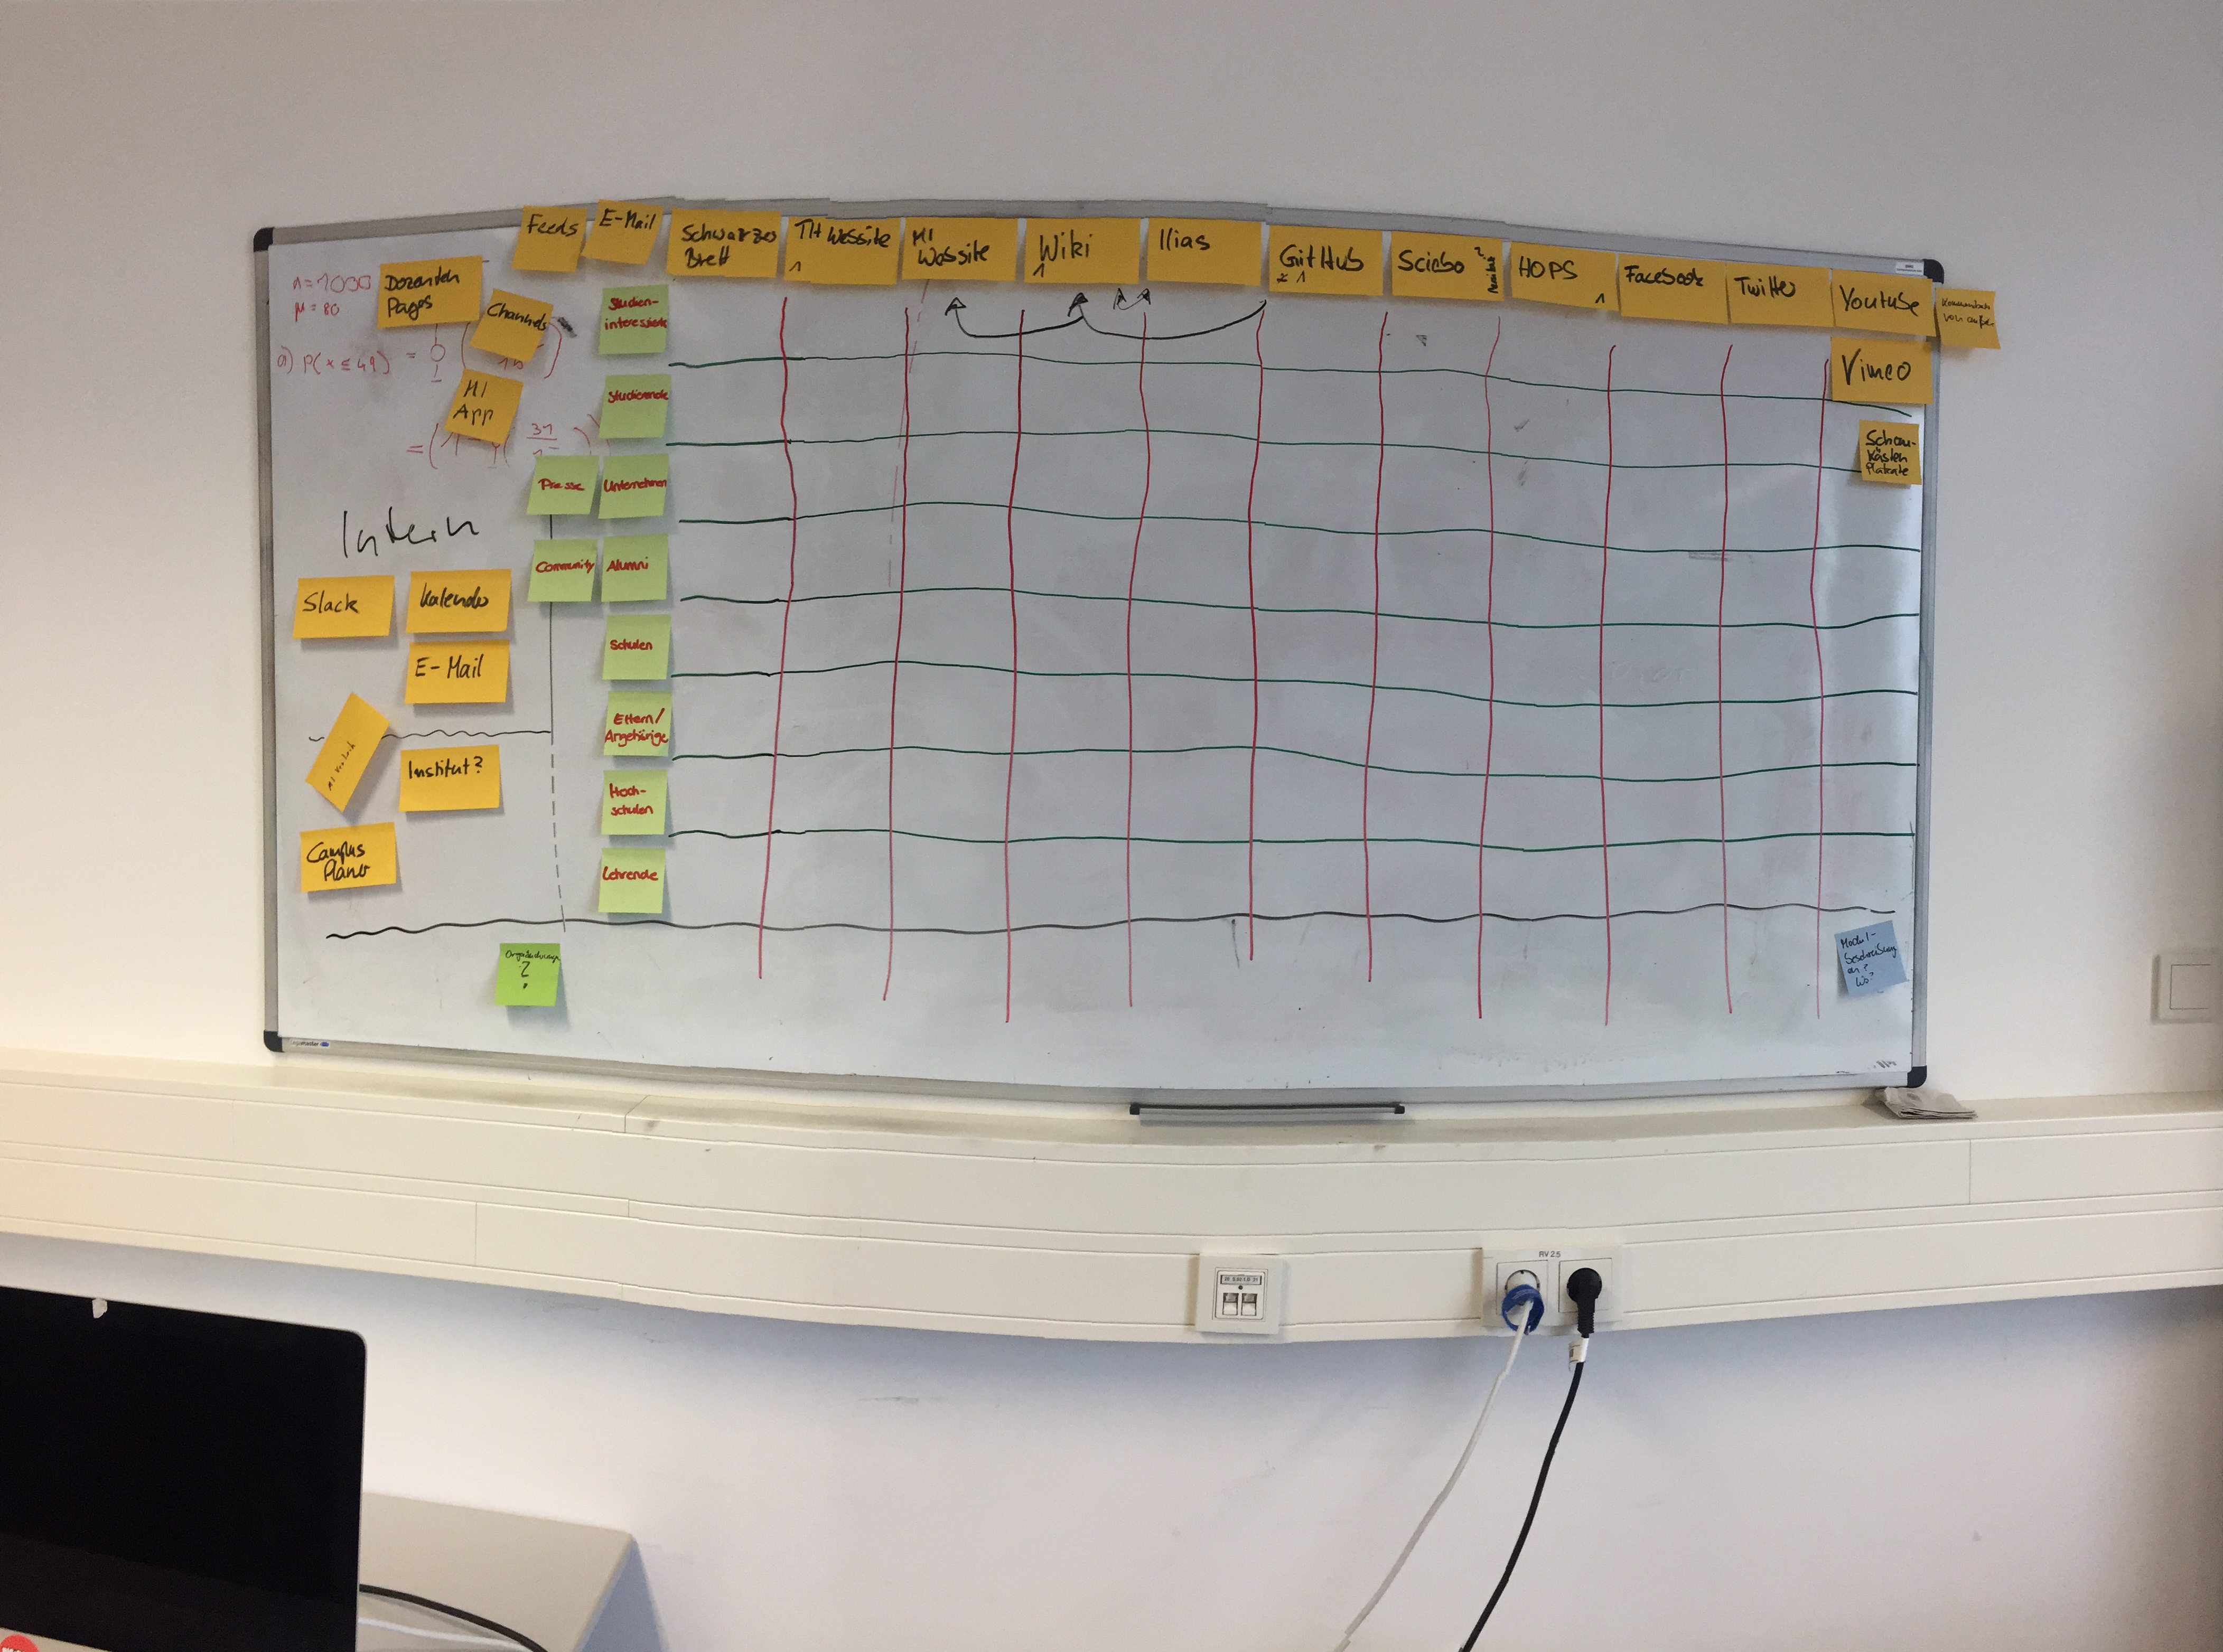 Feeds
E-Mail
Schwarzes
Brett
TH Website
1
MI
Website
Wiki
1
Ilias
GitHub
1
Sciebo
?
HOPS
1
Facebook
Twitter
Youtube
von außen
Vimeo
Schau-
kästen
Plakate
n=1000
µ=80
a) P(x ≤ 49) =
Dozenten
Pages
Channels
MI
App
31
Studien-
interessierte
Studierende
Presse
Unternehmen
Community
Alumni
Schulen
Eltern/
Angehörige
Hoch-
schulen
Lehrende
Intern
Slack
Kalender
E-Mail
Institut?
Campus
Planer
?
Modul-
beschreibung
en?
Wo?
RV 2.5